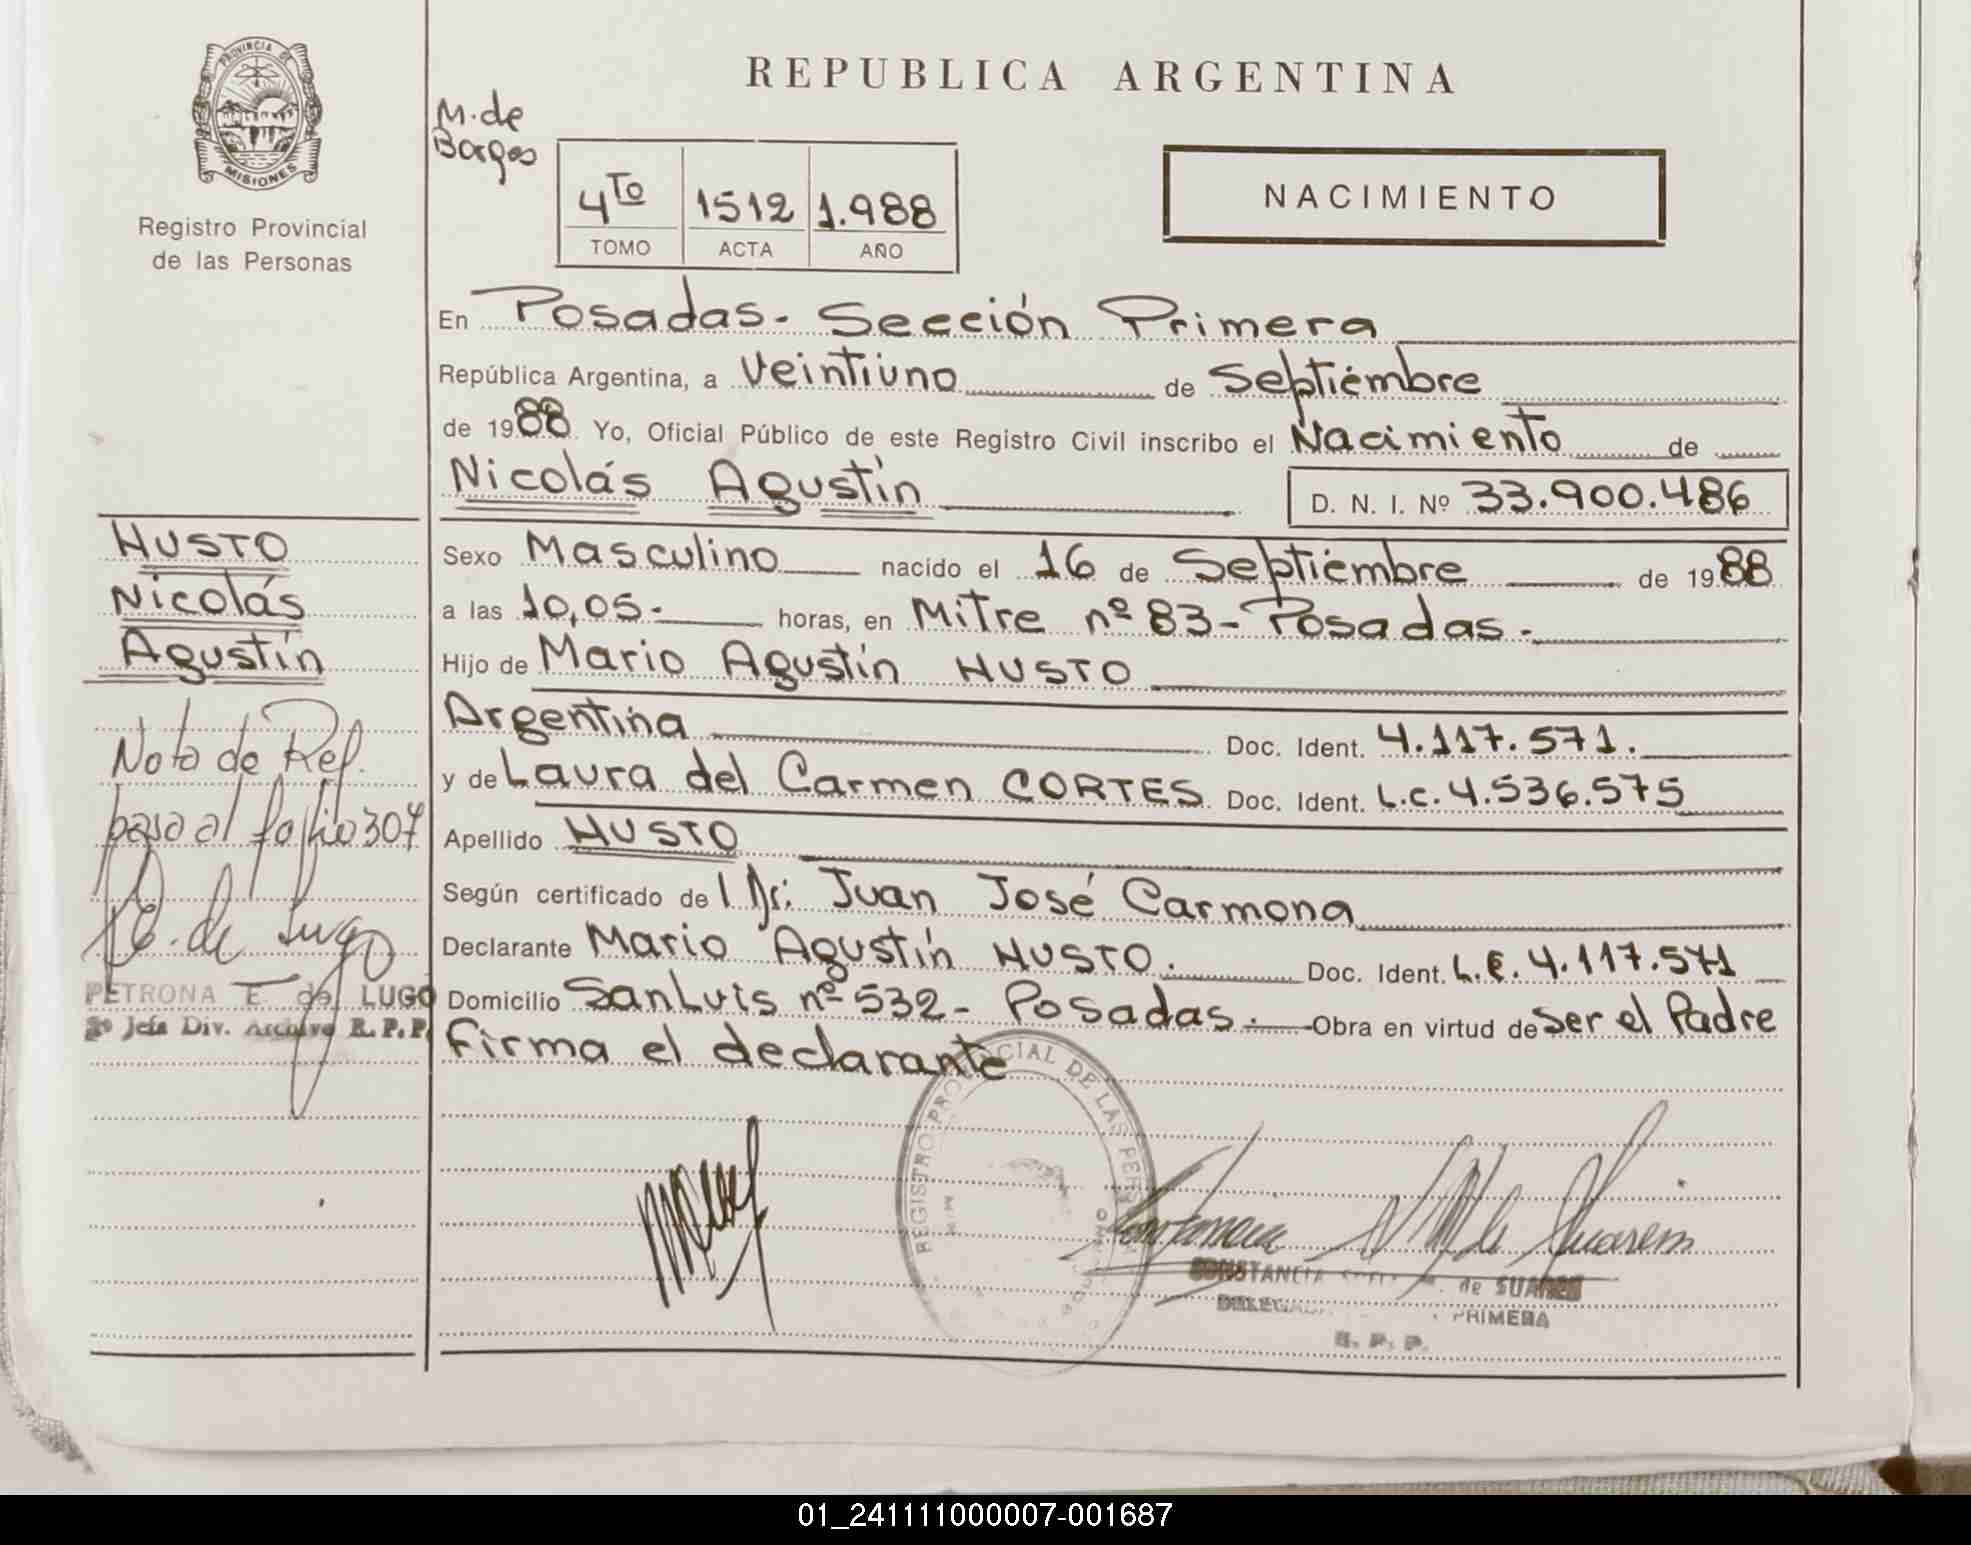 PROVINCIA DE
MISIONES
Registro Provincial
de las Personas
REPUBLICA ARGENTINA
M. de
Borges
4TO 1512 1.988
TOMO ACTA AÑO
NACIMIENTO
En Posadas.- Sección Primera
República Argentina, a Veintiuno de Septiembre
de 1988 Yo, Oficial Público de este Registro Civil inscribo el Nacimiento de
Nicolás Agustín D. N. I. Nº 33.900.486
Sexo Masculino nacido el 16 de Septiembre de 1988
a las 10,05.- horas, en Mitre nº 83- Posadas.-
Hijo de Mario Agustín HUSTO
Argentina Doc. Ident. 4.117.571.
y de Laura del Carmen CORTES Doc. Ident. L.C. 4.536.575
Apellido HUSTO
Según certificado de l Dr: Juan José Carmona
Declarante Mario Agustín HUSTO. Doc. Ident. L.E. 4.117.571
Domicilio San Luis nº 532- Posadas.- Obra en virtud de Ser el Padre
Firma el declarante
HUSTO
Nicolás
Agustín
Nota de Ref.
pasa al folio 307
E. de Lugo
PETRONA E. de LUGO
2º Jefa Div. Archivo R.P.P.
REGISTRO PROVINCIAL DE LAS PERSONAS
CONSTANCIA de SUAREZ
PRIMERA
R. P. P.
01_241111000007-001687